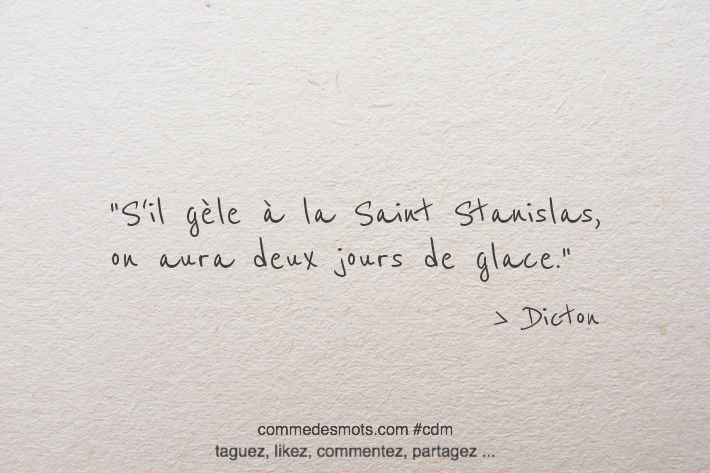 "S'il gèle à la Saint Stanislas,
on aura deux jours de glace."
> Dicton
commedesmots.com #cdm
taguez, likez, commentez, partagez ...